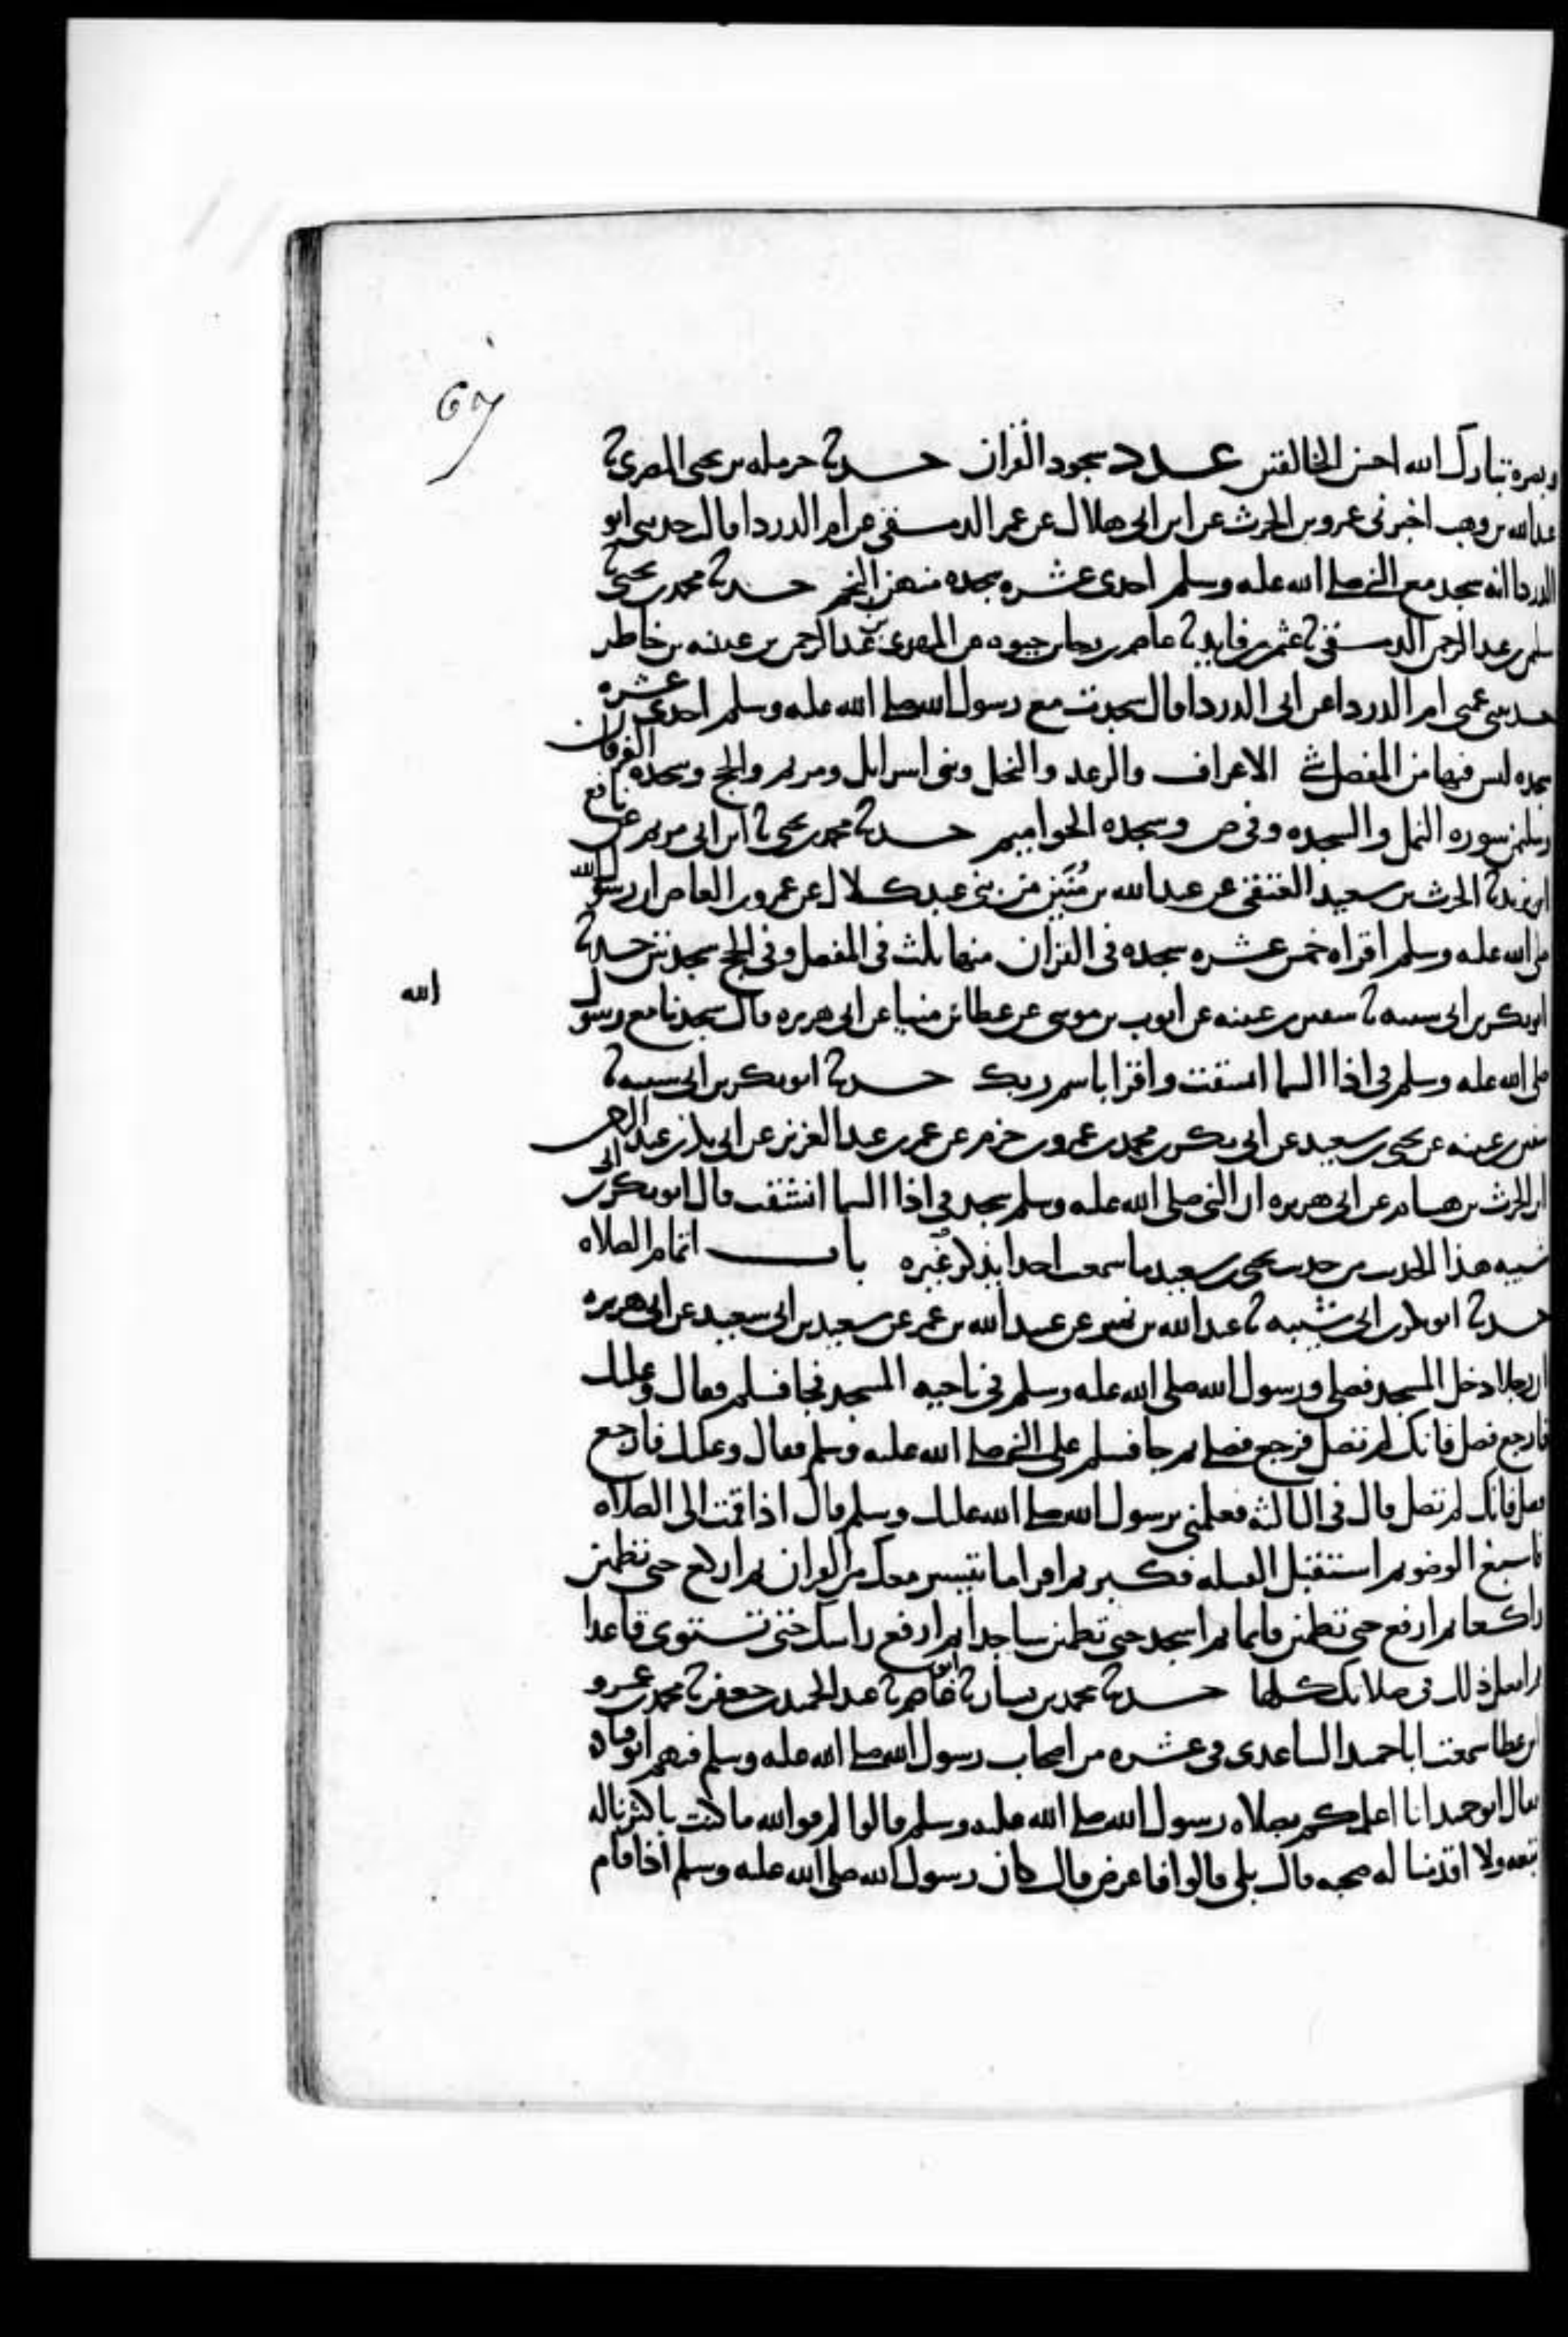 67
وبصره تبارك الله احسن الخالقين عدد سجود القران حدثنا حرمله بن يحيى المصرى نا
عبد الله بن وهب اخبرنى عمرو بن الحرث عن ابن ابى هلال عن عمر الدمشقى عن ام الدردا قال حدثنى ابو
الدردا انه سجد مع النبى صلى الله عليه وسلم احدى عشره سجده منهن النجم حدثنا محمد بن يحيى نا
سليمن بن عبد الرحمن الدمشقى نا عثمن بن فايد نا عاصم بن رجا بن حيوه عن المهدى بن عبد الرحمن بن عيينه بن خاطر
حدثتنى عمتى ام الدردا عن ابى الدردا قال سجدت مع رسول الله صلى الله عليه وسلم احدى عشره
سجده ليس فيها من المفصل شى الاعراف والرعد والنحل وبنى اسرايل ومريم والحج وسجده الفرقان
وسليمن سوره النمل والسجده وفى ص وسجده الحواميم حدثنا محمد بن يحيى نا ابن ابى مريم عن نافع
ابن يزيد نا الحرث بن سعيد العتقى عن عبد الله بن منين من بنى عبد كلال عن عمرو بن العاص ان رسول الله
صلى الله عليه وسلم اقراه خمس عشره سجده فى القران منها ثلث فى المفصل وفى الحج سجدتين حدثنا
ابو بكر بن ابى شيبه نا سفين بن عيينه عن ايوب بن موسى عن عطا بن مينا عن ابى هريره قال سجدنا مع رسول
الله
صلى الله عليه وسلم فى اذا السما انشقت واقرا باسم ربك حدثنا ابو بكر بن ابى شيبه نا
سفين بن عيينه عن يحيى بن سعيد عن ابى بكر بن محمد بن عمرو بن حزم عن عمر بن عبد العزيز عن ابى بكر بن عبد الرحمن
ابن الحرث بن هشام عن ابى هريره ان النبى صلى الله عليه وسلم سجد فى اذا السما انشقت قال ابو بكر بن ابى
شيبه هذا الحديث من حديث يحيى بن سعيد ما سمعت احدا يذكره غيره باب اتمام الصلاه
حدثنا ابو بكر بن ابى شيبه نا عبد الله بن نمير عن عبيد الله بن عمر عن سعيد بن ابى سعيد عن ابى هريره
ان رجلا دخل المسجد فصلى ورسول الله صلى الله عليه وسلم فى ناحيه المسجد فجا فسلم فقال وعليك
فارجع فصل فانك لم تصل فرجع فصلى ثم جا فسلم على النبى صلى الله عليه وسلم فقال وعليك فارجع
فصل فانك لم تصل قال فى الثالثه فعلمنى يرسول الله صلى الله عليك وسلم قال اذا قمت الى الصلاه
فاسبغ الوضو ثم استقبل القبله فكبر ثم اقرا ما تيسر معك من القران ثم اركع حتى تطمئن
راكعا ثم ارفع حتى تطمئن قايما ثم اسجد حتى تطمئن ساجدا ثم ارفع راسك حتى تستوى قاعدا
ثم افعل ذلك فى صلاتك كلها حدثنا محمد بن بشار نا ابو عاصم نا عبد الحميد بن جعفر نا محمد بن عمرو
ابن عطا سمعت ابا حميد الساعدى فى عشره من اصحاب رسول الله صلى الله عليه وسلم فيهم ابو قتاده
فقال ابو حميد انا اعلمكم بصلاه رسول الله صلى الله عليه وسلم قالوا لم فوالله ما كنت باكثرنا له
تبعه ولا اقدمنا له صحبه قال بلى قالوا فاعرض قال كان رسول الله صلى الله عليه وسلم اذا قام